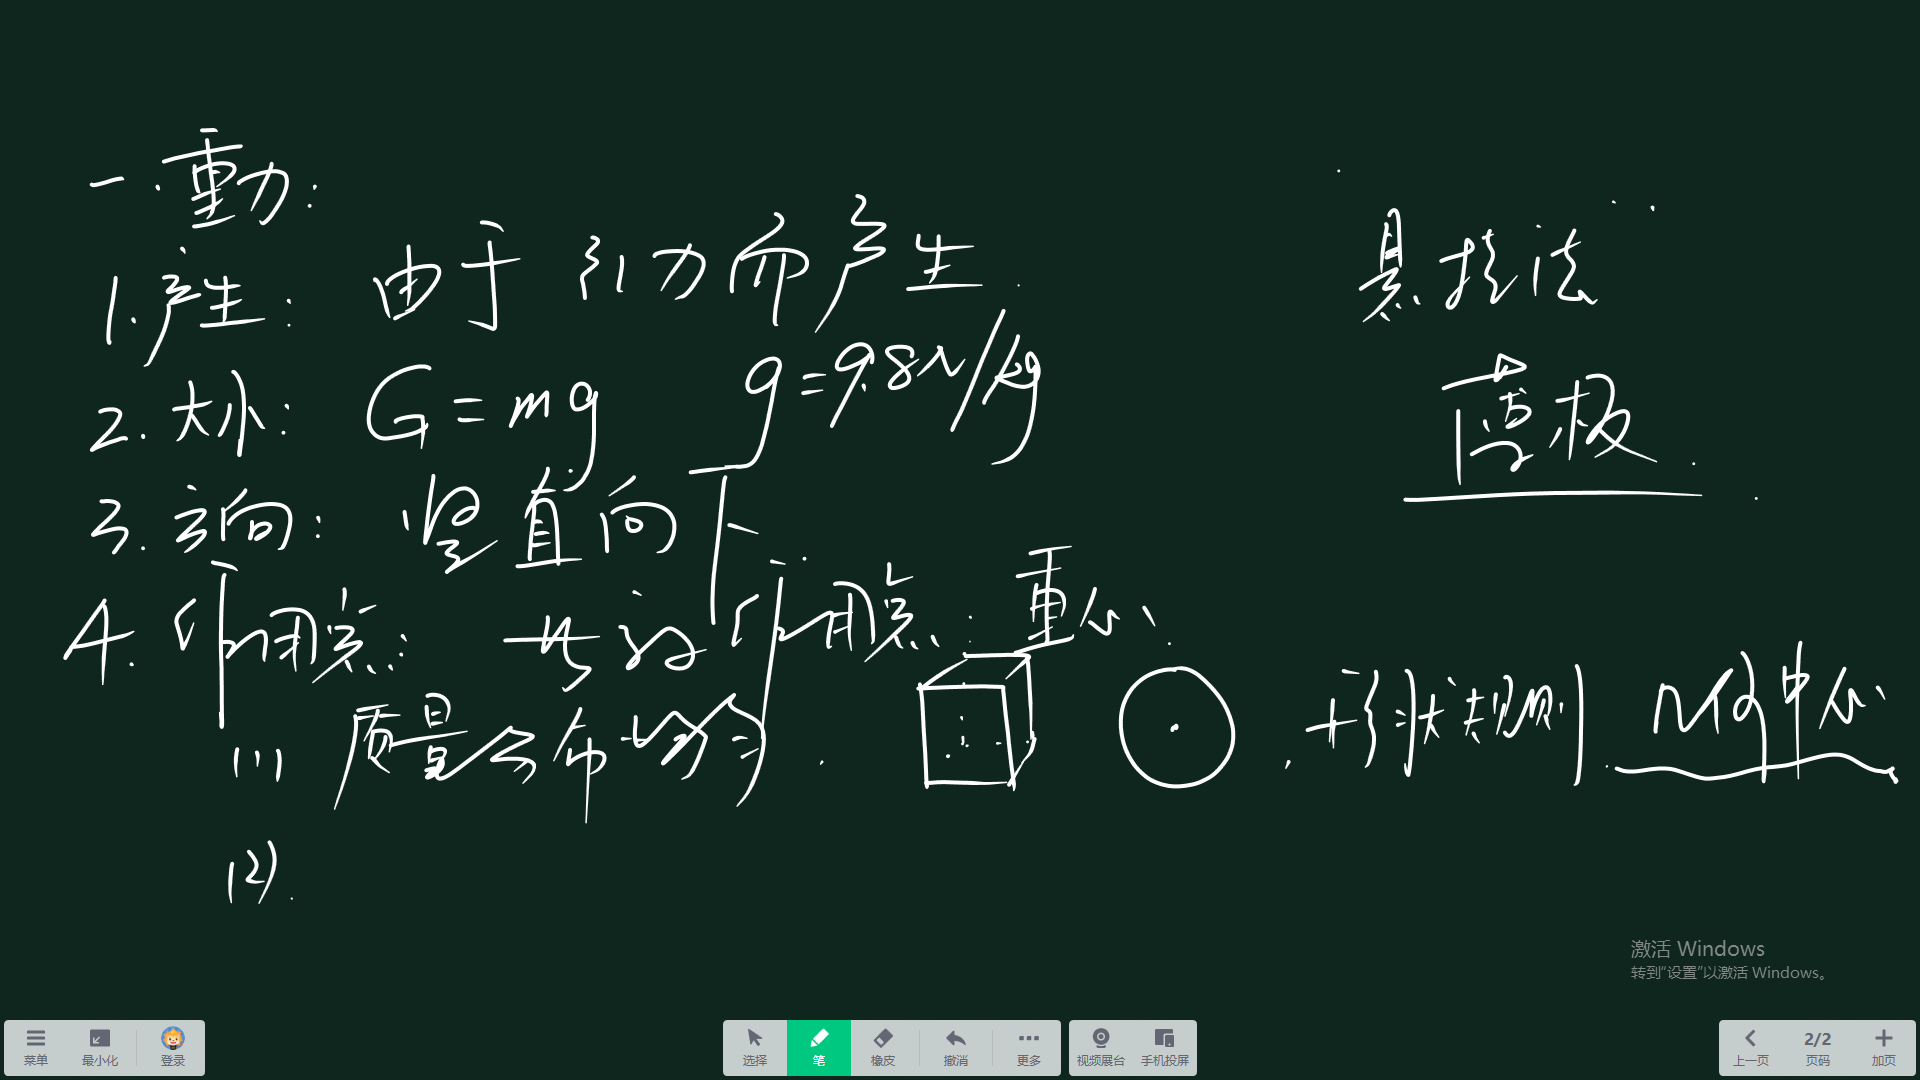 一.重力:
1.产生: 由于引力而产生.
2.大小: G=mg g=9.8N/kg
3.方向: 竖直向下
4.作用点: 共的作用点: 重心.
(1) 质量分布均匀. 形状规则. 几何中心
(2).
悬挂法
薄板.
激活 Windows
转到“设置”以激活 Windows。
菜单 最小化 登录 选择 笔 橡皮 撤消 更多 视频展台 手机投屏 上一页 2/2 页码 加页